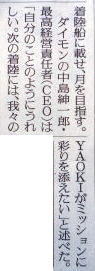 着陸船に載せ、月を目指す。
ダイモンの中島紳一郎・
最高経営責任者(CEO)は
「自分のことのようにうれ
しい。次の着陸には、我々の
YAOKIがミッションに
彩りを添えたい」と述べた。